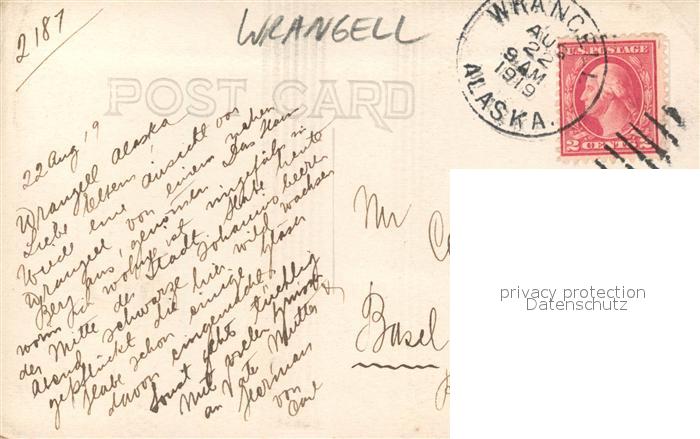 2187
WRANGELL
WRANGELL
AUG
22
9 AM
1919
ALASKA.
U.S. POSTAGE
2 CENTS 2
POST CARD
22 Aug 19
Wrangell Alaska
Liebe Eltern!
Werde eine Ansicht von
Wrangell von einem nahen
Berg aus, genommen. Das Haus
worin ich wohne ist ungefähr in
der Mitte der Stadt. Habe heute
Abend schwarze Johannisbeeren
gepflückt die hier wild wachsen
Habe schon einige Gläser
davon eingemacht.
Sonst geht's
Mit vielen
an Vater Mutter
Herman
von
Mr
Basel
privacy protection
Datenschutz